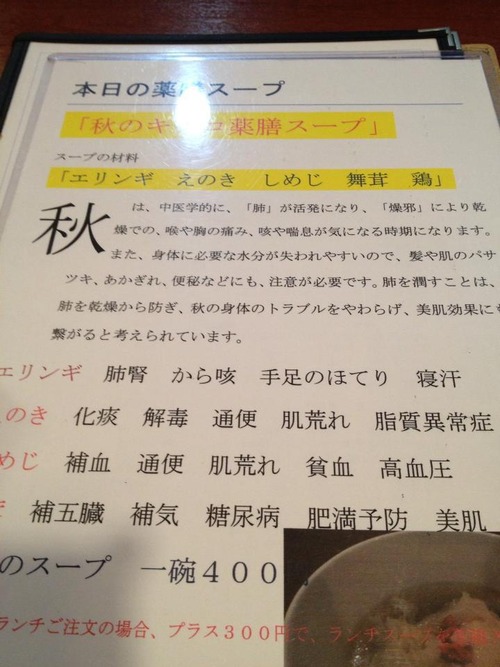 本日の薬膳スープ
「秋のキノコ薬膳スープ」
スープの材料
「エリンギ えのき しめじ 舞茸 鶏」
秋は、中医学的に、「肺」が活発になり、「燥邪」により乾
燥での、喉や胸の痛み、咳や喘息が気になる時期になります。
また、身体に必要な水分が失われやすいので、髪や肌のパサ
ツキ、あかぎれ、便秘などにも、注意が必要です。肺を潤すことは、
肺を乾燥から防ぎ、秋の身体のトラブルをやわらげ、美肌効果にも
繋がると考えられています。
エリンギ 肺腎 から咳 手足のほてり 寝汗
えのき 化痰 解毒 通便 肌荒れ 脂質異常症
めじ 補血 通便 肌荒れ 貧血 高血圧
補五臓 補気 糖尿病 肥満予防 美肌
のスープ 一碗400
ランチご注文の場合、プラス300円で、ランチスープを